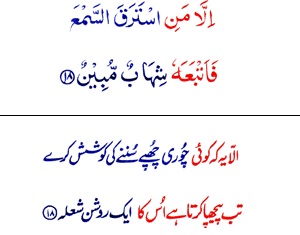 اِلَّا مَنِ اسْتَرَقَ السَّمْعَ
فَاَتْبَعَهٗ شِهَابٌ مُّبِيْنٌ ۝۱۸
الّا یہ کہ کوئی چُوری چُھپے سُننے کی کوشش کرے
تب پیچھا کرتا ہے اُس کا ایک روشن شعلہ ۝۱۸